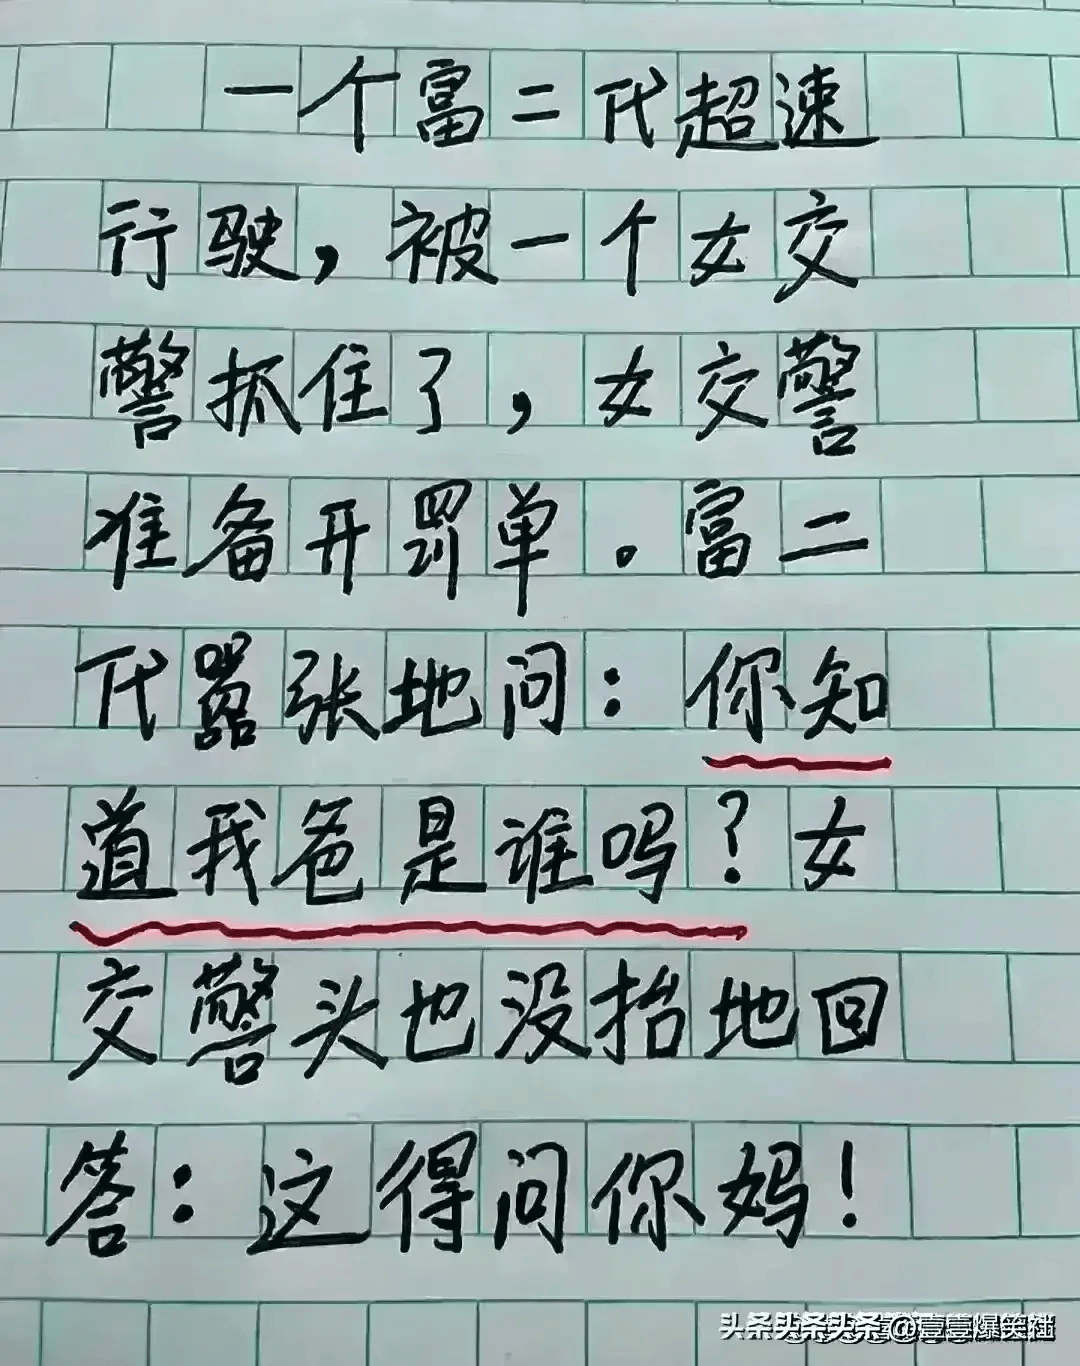 一个富二代超速
行驶，被一个女交
警抓住了，女交警
准备开罚单。富二
代嚣张地问：你知
道我爸是谁吗？女
交警头也没抬地回
答：这得问你妈！
头条头条头条@壹壹爆笑社